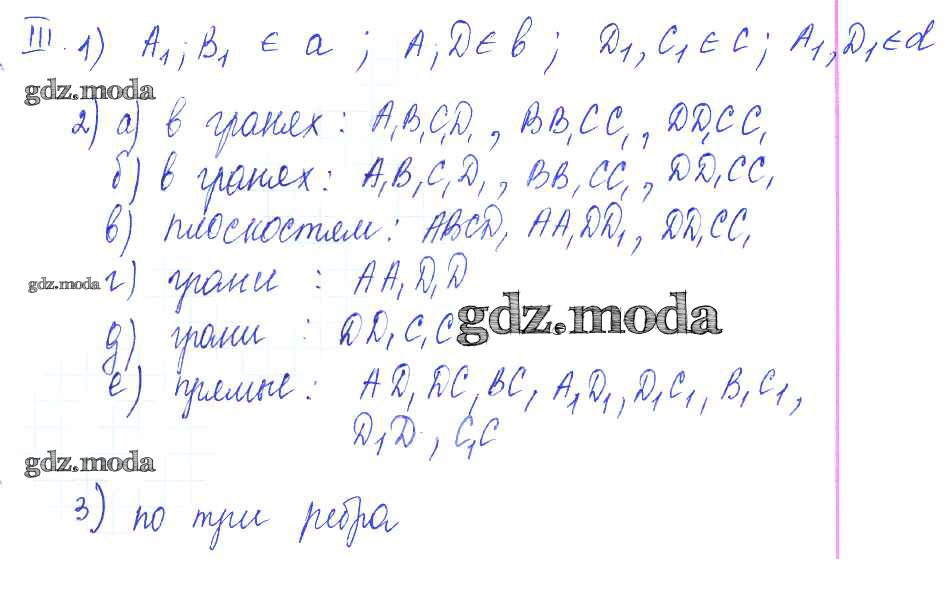 III. 1) A₁; B₁ ∈ a ; A, D ∈ b ; D₁, C₁ ∈ c ; A₁, D₁ ∈ d
gdz.moda
2) а) в гранях : A₁B₁C₁D₁, BB₁CC₁, DD₁CC₁
б) в гранях : A₁B₁C₁D₁, BB₁CC₁, DD₁CC₁
в) плоскостям : ABCD, AA₁DD₁, DD₁CC₁
gdz.moda г) грани : AA₁D₁D
gdz.moda
д) грани : DD₁C₁C
е) прямые : AD, DC, BC, A₁D₁, D₁C₁, B₁C₁,
D₁D , C₁C
gdz.moda
3) по три ребра